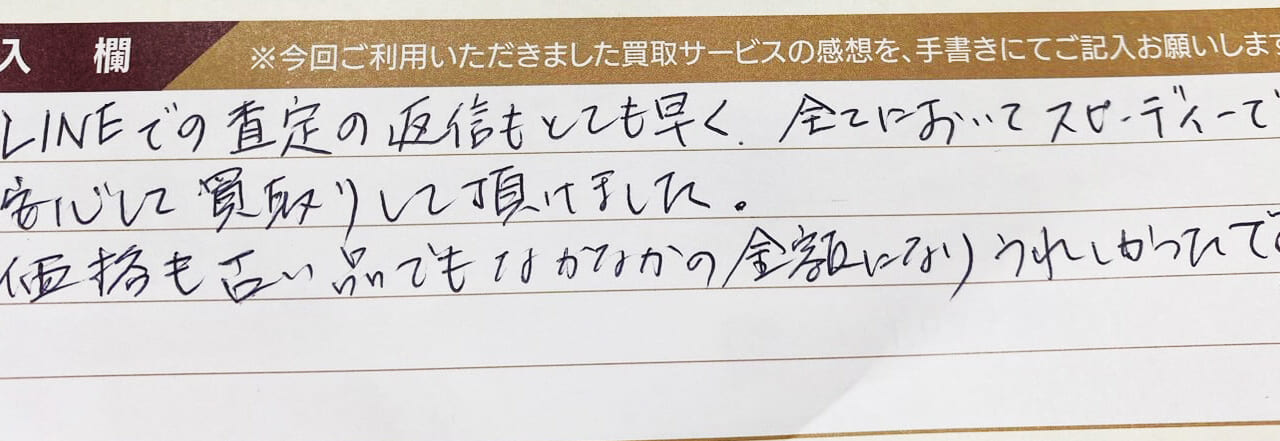 入欄 ※今回ご利用いただきました買取サービスの感想を、手書きにてご記入お願いします
LINEでの査定の返信もとても早く、全てにおいてスピーディーで
安心して買取りして頂けました。
価格も古い品でもなかなかの金額になりうれしかったで